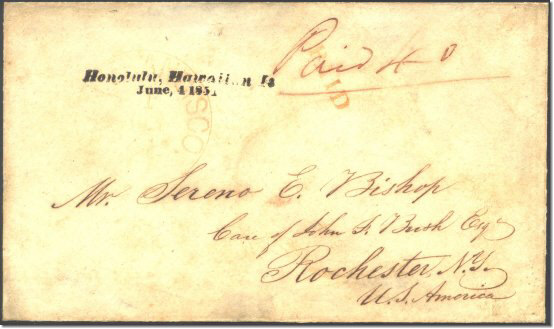 Paid 40
Honolulu, Hawaiian Is
June, 4 1851
PAID
Mr. Sereno E. Bishop
Care of John F. Bush Esqr
Rochester N.Y.
U.S. America